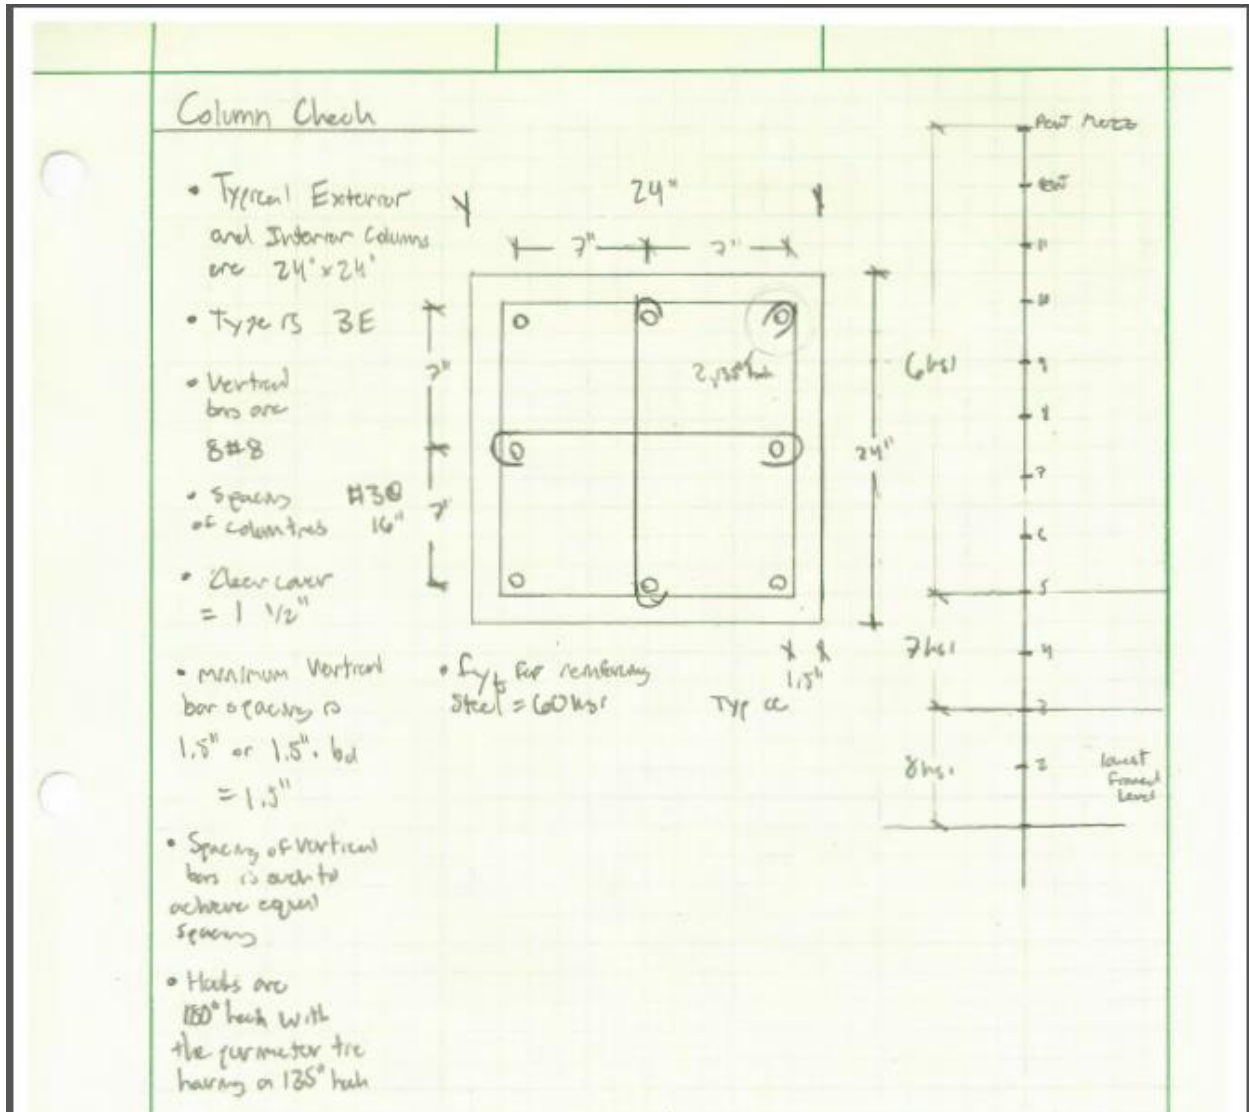 Column Check
• Typical Exterior
and Interior Columns
are 24" x 24"
• Type is 3E
• Vertical
bars are
8#8
• Spacing #3@
of column ties 16"
• Clear cover
= 1 1/2"
• minimum vertical
bar spacing is
1.5" or 1.5". bd
= 1.5"
• Spacing of vertical
bars is such to
achieve equal
spacing
• Hooks are
180° hook with
the perimeter tie
having a 135° hook
24"
7" 7"
7"
7"
2, 135° hook
24"
1.5"
Typ
• fyt for reinforcing
Steel = 60 ksi
6 ksi
7 ksi
8 ksi
11
10
9
8
7
6
5
4
3
2
lowest
framed
Level